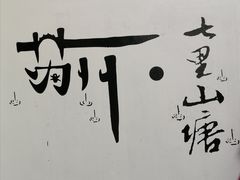 苏州·七里山塘